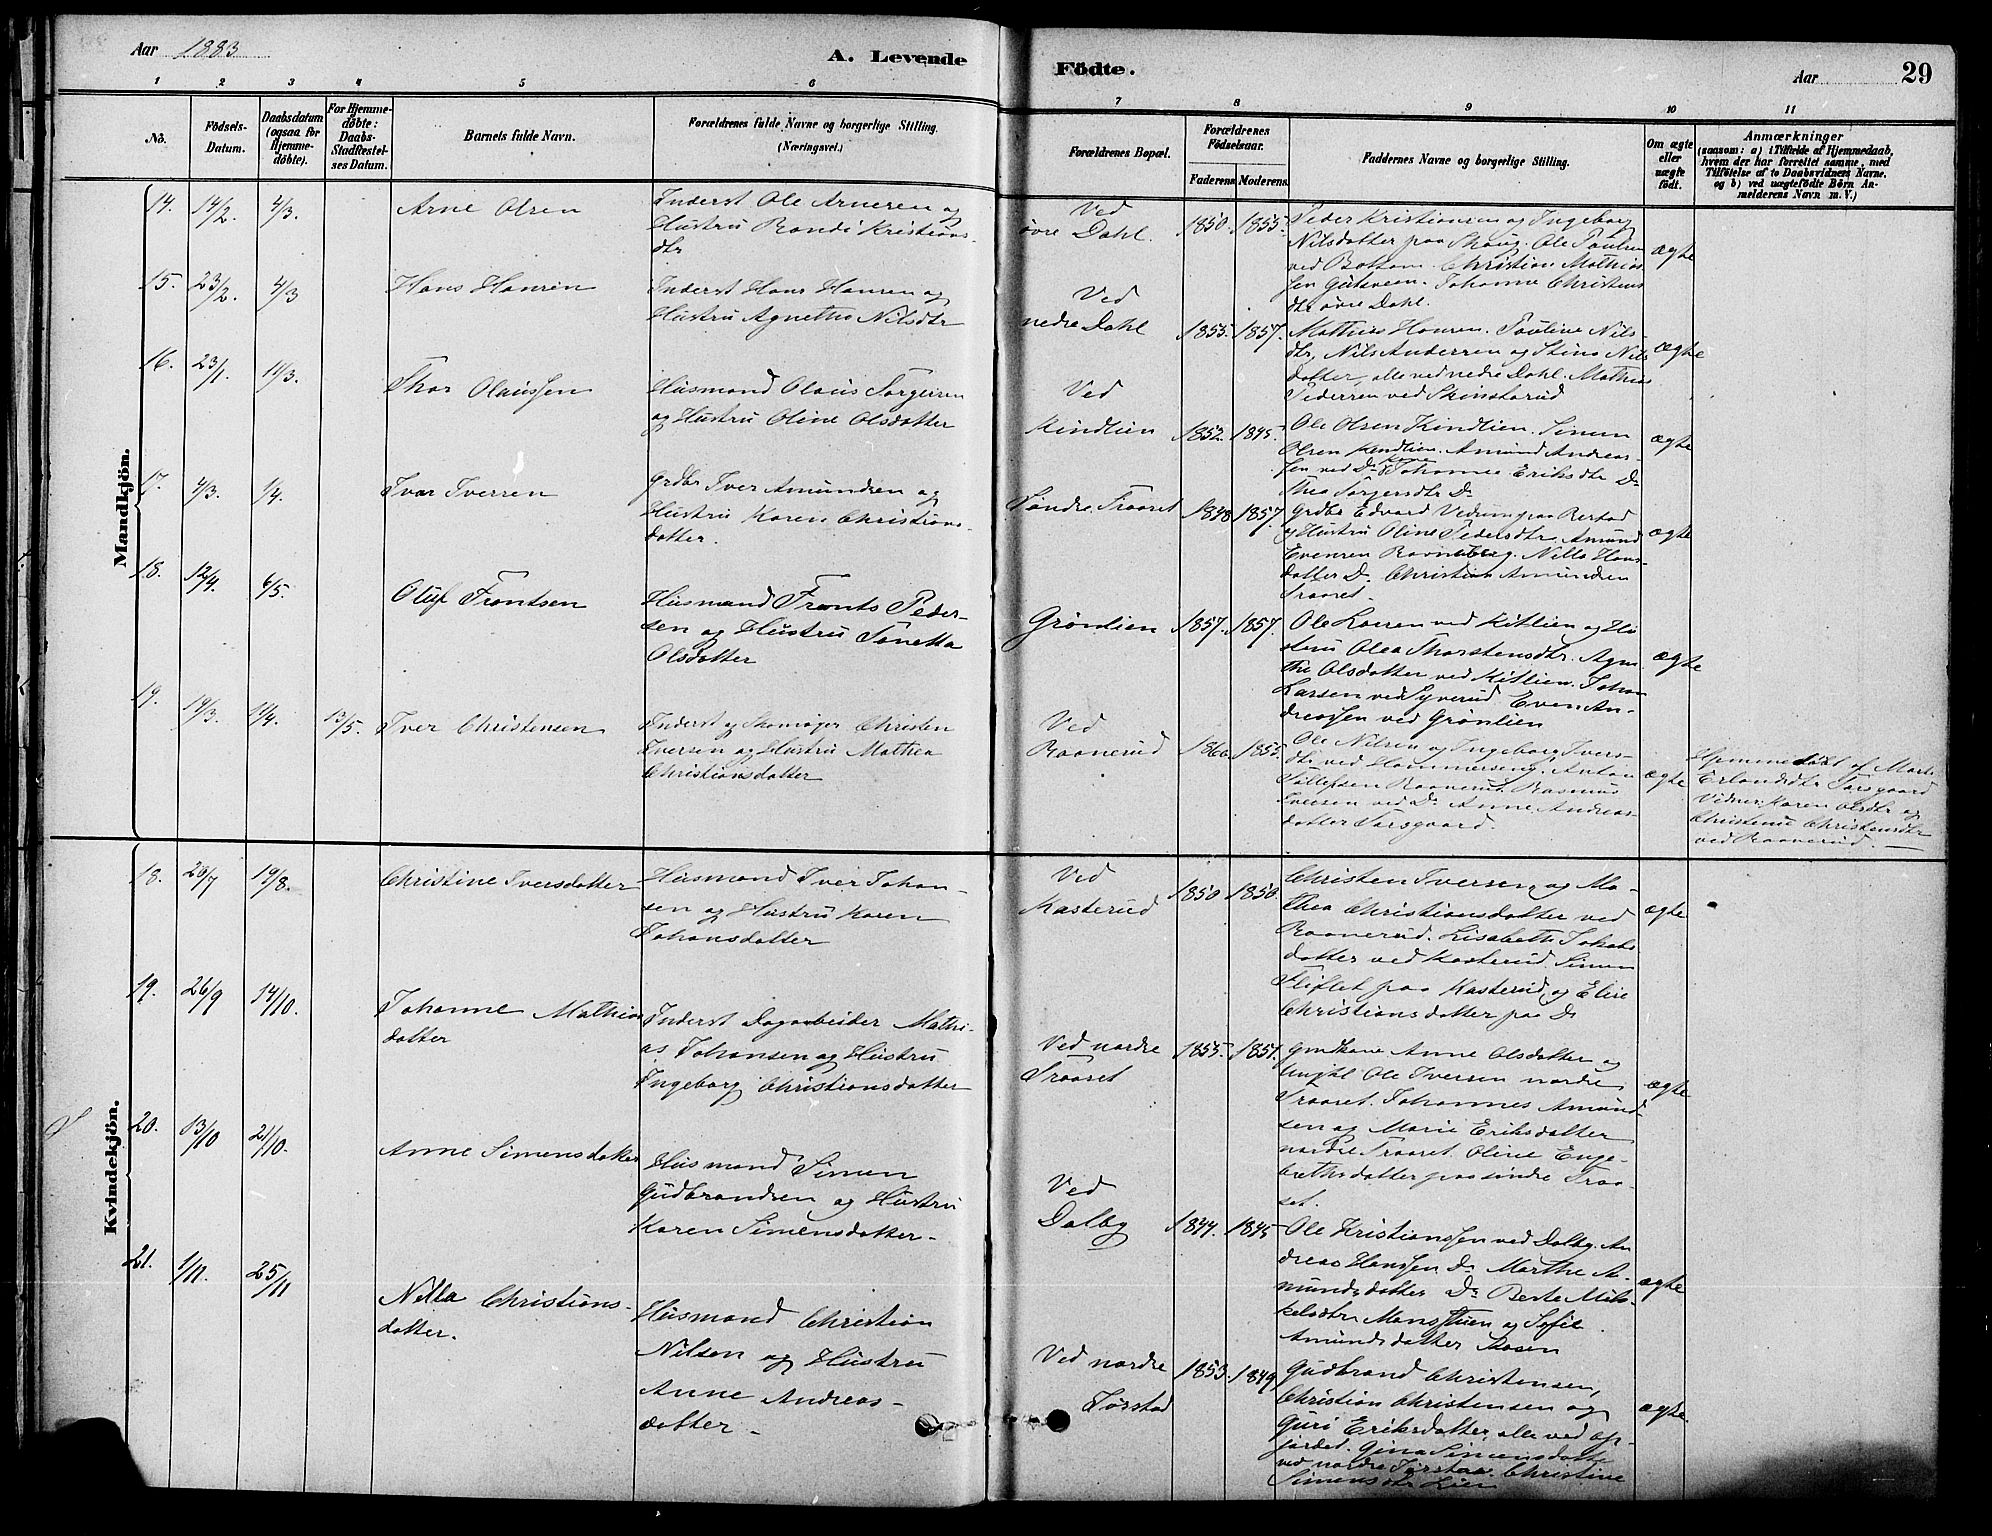 Aar 1883
A. Levende
Födte.
Aar
29
1 2 3 4 5 6 7 8 9 10 11
No.
Födsels-
Datum.
Daabsdatum
(ogsaa for
Hjemme-
döbte).
For Hjemme-
döbte:
Daabs-
Stadfæstel-
ses Datum.
Barnets fulde Navn.
Forældrenes fulde Navne og borgerlige Stilling.
(Næringsvei.)
Forældrenes Bopæl.
Forældrenes
Födselsaar.
Faderens Moderens
Faddernes Navne og borgerlige Stilling.
Om ægte
eller
uægte
födt.
Anmærkninger
(saasom: a) i Tilfælde af Hjemmedaab,
hvem der har forrettet samme, med
Tilföielse af to Daabsvidners Navne,
og b) ved uægtefödte Börn An-
melderens Navn m. V.)
Mandkjön.
14. 14/2. 4/3. Arne Olsen
Inderst Ole Arnesen og
Hustru Randi Kristians-
dtr
Ved
øvre Dahl. 1850. 1855.
Peder Kristiansen og Ingeborg
Nilsdatter paa Skaug. Ole Paulsen
ved Christian Mathias
sen Johanne Christens
dtr øvre Dahl.
ægte
15. 23/2. 4/3 Hans Hansen
Inderst Hans Hansen og
Hustru Agnethe Nilsdtr
Ved
nedre Dahl 1855. 1857.
Mathias Hansen. Pauline Nils
dtr, Nils Andersen og Stina Nils
datter, alle ved nedre Dahl. Mathias
Pedersen ved Skinstarud
ægte
16. 23/1. 11/3. Thor Olaussen
Husmand Olaus Torgersen
og Hustru Oline Olsdatter
Ved
Kindlien 1852. 1845.
Ole Olsen Kindlien. Simen
Olsen Kindlien. Amund Andreas-
sen ved Do. Kone Johanne Eriksdtr Do
Thea Torgersdtr Do
ægte
17. 4/3. 1/4. Ivar Iversen
Grdbr Iver Amundsen og
Hustru Karen Christians-
datter.
Søndre Traaset 1848 1857.
Grdbr Edvard Vedum paa
og Hustru Oline Pedersdtr, Amund
Evensen Nella Hans
datter Do. Christian Amundsen
Traaset.
ægte
18. 12/4. 6/5. Oluf Frantsen
Husmand Frants Peder-
sen og Hustru Tonetta
Olsdatter
Grønlien 1857. 1857.
Ole Larsen ved Kitlien og Hu
stru Olea Thorstensdtr. Agne
the Olsdatter ved Kitlien. Johan
Larsen ved Syverud Even An-
dreassen ved Grønlien
ægte
19. 14/3. 11/4. 13/5. Iver Christensen
Inderst og Skomager Christen
Iversen og Hustru Mathea
Christiansdatter
Ved
Raanerud 1860 1855.
Ole Nilsen og Ingeborg Ivers-
dtr ved Hammerseng. Anton
Tollefsen Raanerud. Rasmus
Iversen ved Do Anne Andreas-
datter Torsgaard.
ægte
Hjemmedøbt af Marte
Erlandsdtr Torsgaard
Vidner: Karen og
Christense Christensdtr
ved Raanerud.
Kvindekjön.
18. 28/7 19/8. Christine Iversdatter
Husmand Iver Johan-
sen og Hustru Karen
Johansdatter
Ved
Kasterud 1850 1850.
Christen Iversen og Ma-
thea Christiansdatter ved
Raanerud. Lisabeth Johans
datter ved Kasterud. Simen
Fliflet paa Kasterud og Elise
Christiansdatter paa Do
ægte
19. 26/9 14/10. Johanne Mathias
datter
Inderst Dagarbeider Mathi-
as Johansen og Hustru
Ingeborg Christiansdatter
Ved nordre
Traaset 1855. 1857.
Gmdkone Anne Olsdatter og
Ungkl Ole Iversen nordre
Traaset. Johannes Amund-
sen og Marie Eriksdatter
nordre Traaset. Oline Enge-
brethsdatter paa søndre Traa-
set.
ægte
20. 13/10 21/10. Anne Simensdatter
Husmand Simen
Gudbrandsen og Hustru
Karen Simensdatter-
Ved
Dalby 1844. 1845
Ole Kristianssen ved Dalby. An
dreas Hanssen Do Marthe A-
mundsdatter Do Berte Mik-
kelsdtr Mansstuen og Sofie
Amundsdatter
ægte
21. 1/11. 25/11 Nella Christians-
datter.
Husmand Christian
Nilsen og Hustru
Anne Andreas-
datter-
Ved nordre
Jørstad 1853. 1849.
Gudbrand Christensen,
Christian Christensen og
Guri Eriksdatter, alle ved
Gina Simensdatter
ved nordre Jørstad. Christine
Simensdtr Lien
ægte.